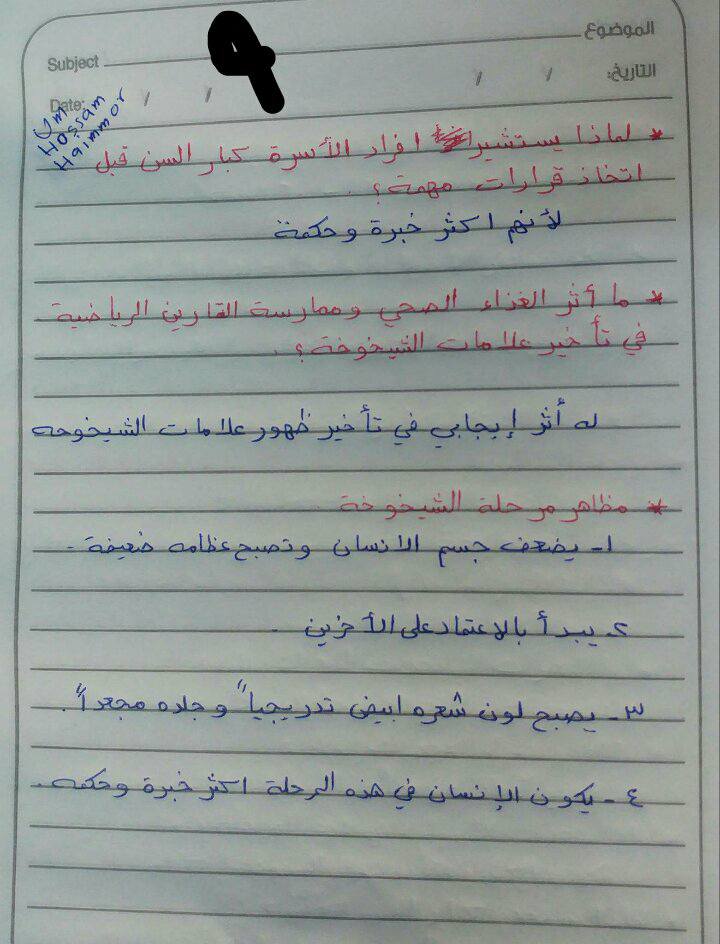 الموضوع
Subject
التاريخ:
Date: / / / /
Um
Hossam
Haimmor
٩
* لماذا يستشير افراد الأسرة كبار السن قبل
اتخاذ قرارات مهمة؟
لأنهم اكثر خبرة وحكمة
* ما أثر الغذاء الصحي وممارسة التمارين الرياضية
في تأخير علامات الشيخوخة؟
له أثر إيجابي في تأخير ظهور علامات الشيخوخه
* مظاهر مرحلة الشيخوخة
١- يضعف جسم الانسان وتصبح عظامه ضعيفة.
٢- يبدأ بالاعتماد على الأخرين.
٣- يصبح لون شعره ابيض تدريجياً وجلده مجعداً.
٤- يكون الإنسان في هذه المرحلة اكثر خبرة وحكمه.